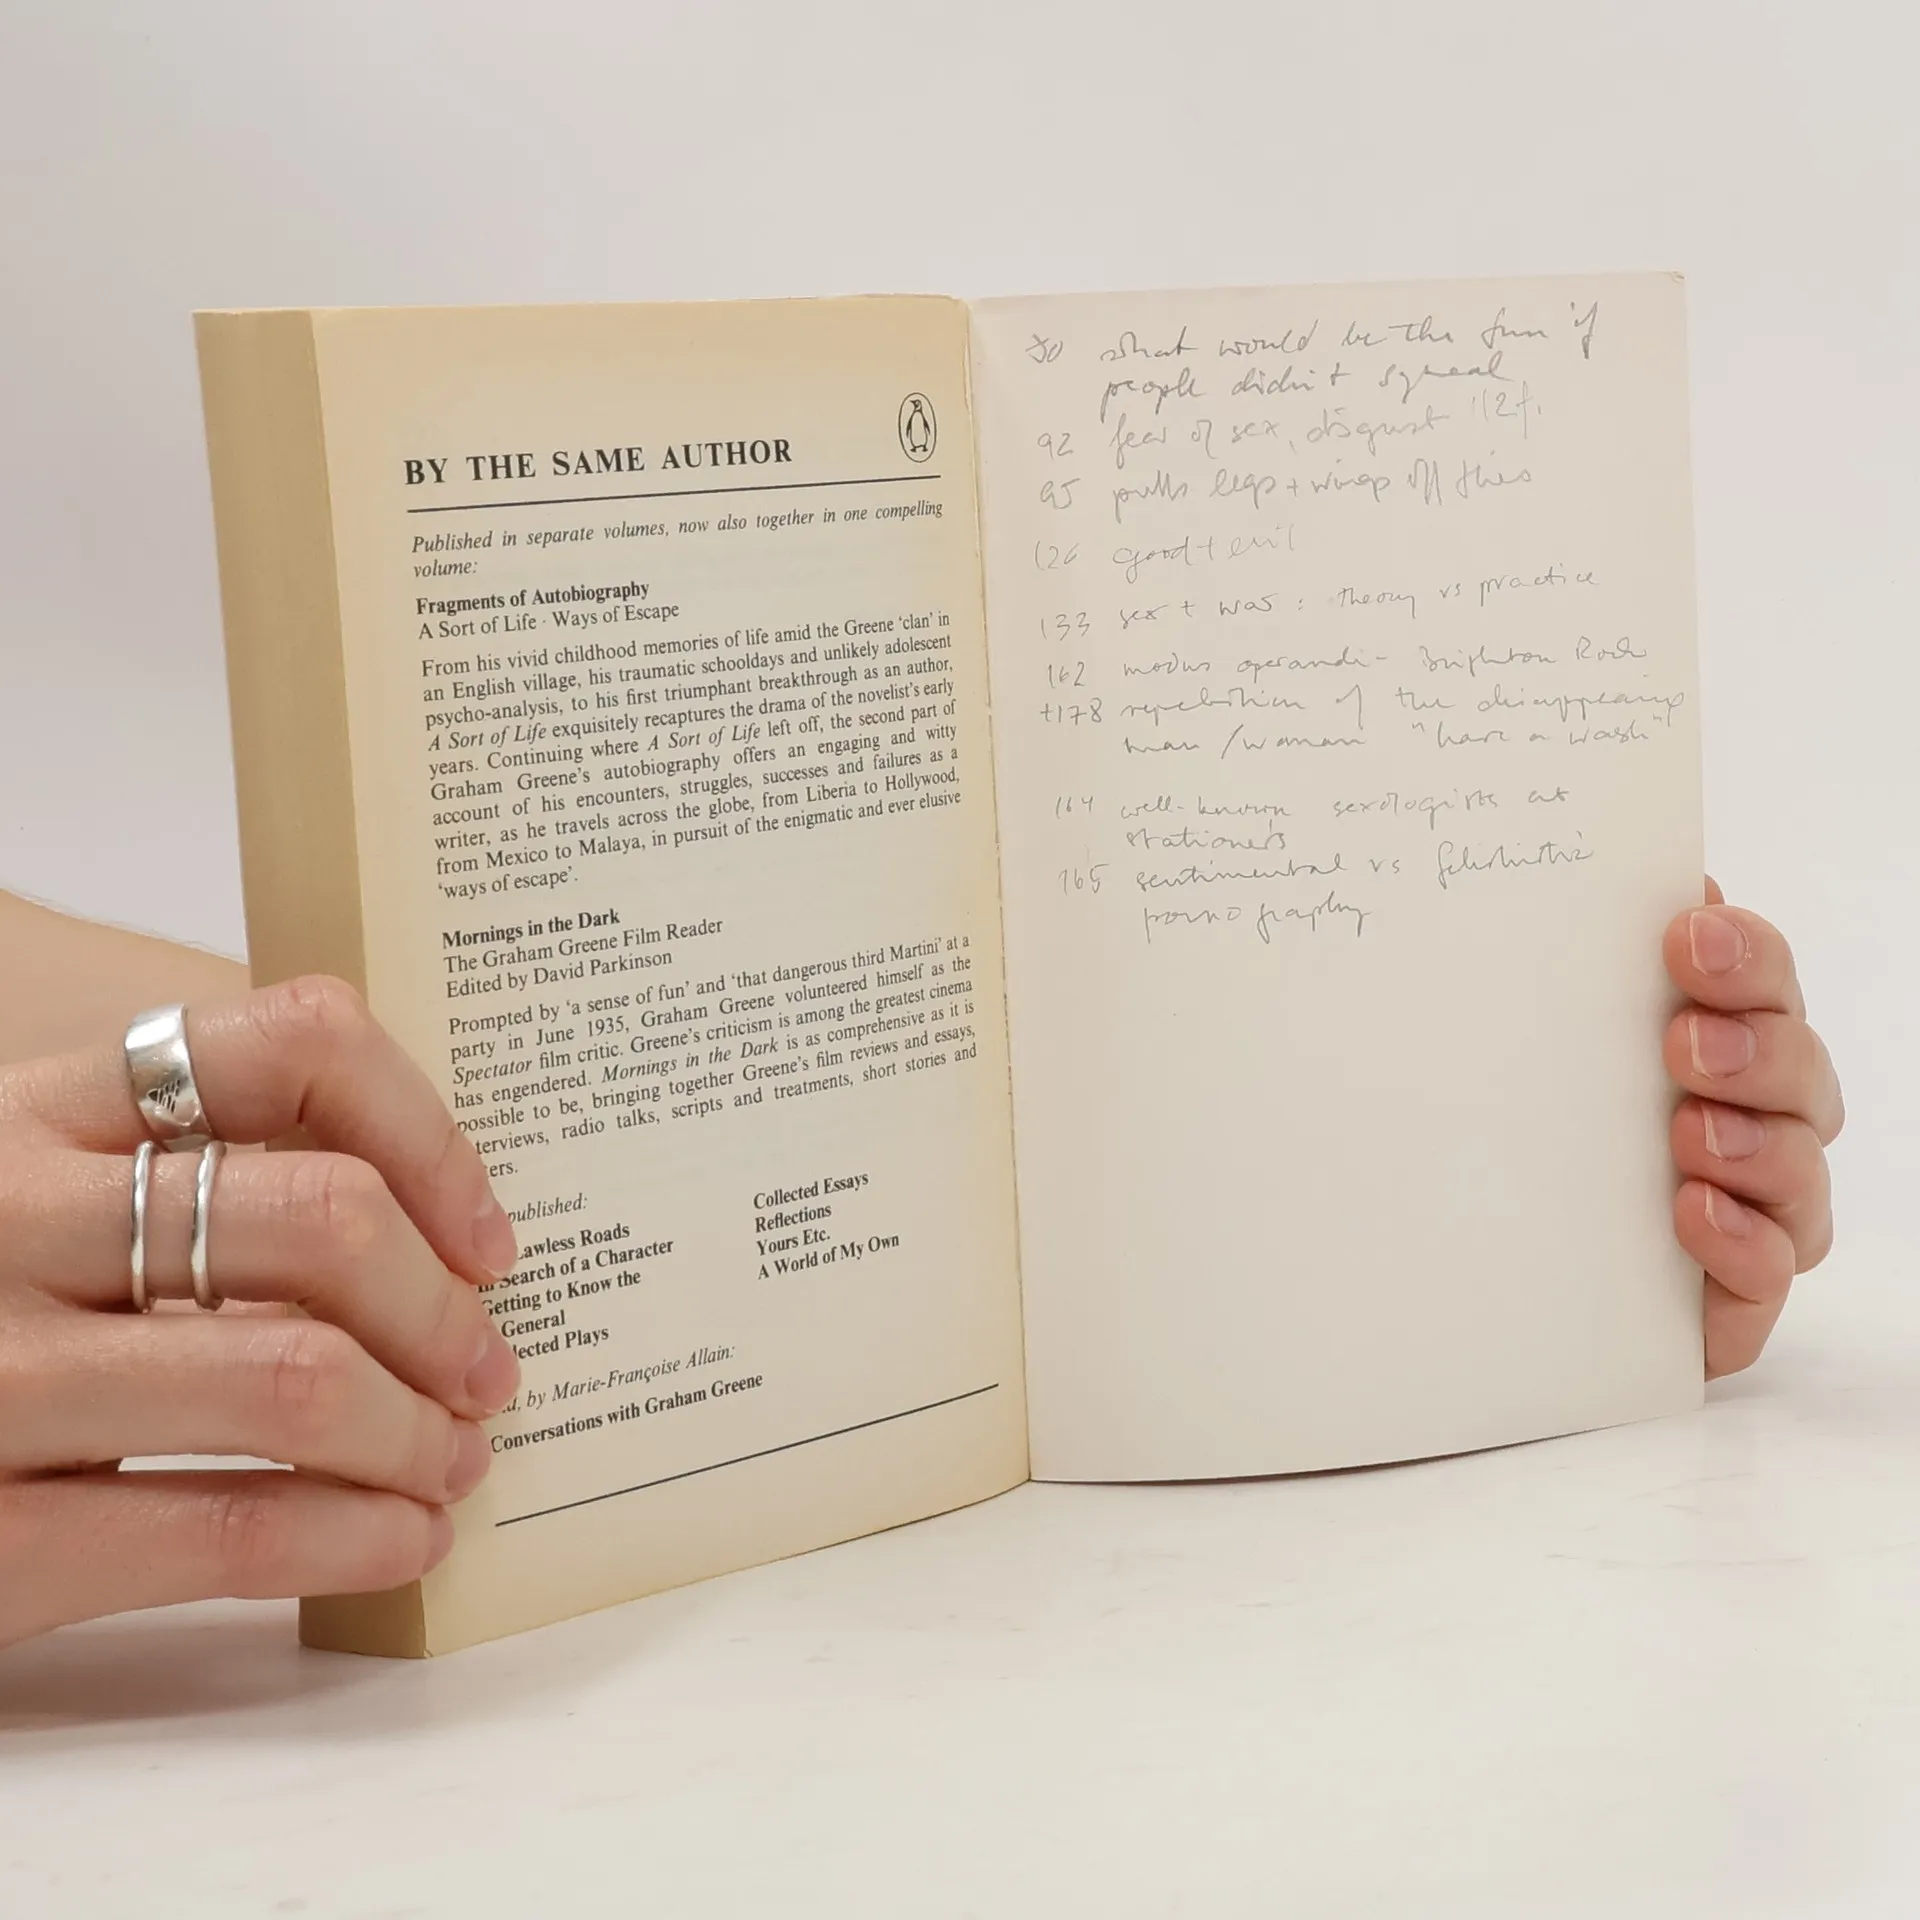 BY THE SAME AUTHOR
Published in separate volumes, now also together in one compelling
volume:
Fragments of Autobiography
A Sort of Life · Ways of Escape
From his vivid childhood memories of life amid the Greene ‘clan’ in
an English village, his traumatic schooldays and unlikely adolescent
psycho-analysis, to his first triumphant breakthrough as an author,
A Sort of Life exquisitely recaptures the drama of the novelist's early
years. Continuing where A Sort of Life left off, the second part of
Graham Greene's autobiography offers an engaging and witty
account of his encounters, struggles, successes and failures as a
writer, as he travels across the globe, from Liberia to Hollywood,
from Mexico to Malaya, in pursuit of the enigmatic and ever elusive
‘ways of escape’.
Mornings in the Dark
The Graham Greene Film Reader
Edited by David Parkinson
Prompted by ‘a sense of fun’ and ‘that dangerous third Martini’ at a
party in June 1935, Graham Greene volunteered himself as the
Spectator film critic. Greene's criticism is among the greatest cinema
has engendered. Mornings in the Dark is as comprehensive as it is
possible to be, bringing together Greene's film reviews and essays,
terviews, radio talks, scripts and treatments, short stories and
ers.
published:
Lawless Roads
In Search of a Character
Getting to Know the
General
lected Plays
Collected Essays
Reflections
Yours Etc.
A World of My Own
by Marie-Françoise Allain:
Conversations with Graham Greene
what would be the fun if
people didn't squeal
92 fear of sex, disgust 112f.
95 pulls legs + wings off flies
126 good + evil
133 sex + war : theory vs practice
162 modus operandi - Brighton Rock
+178 repetition of the disappearing
man / woman "have a wash"
164 well-known sexologists at
stationer's
165 sentimental vs fetishistic
pornography